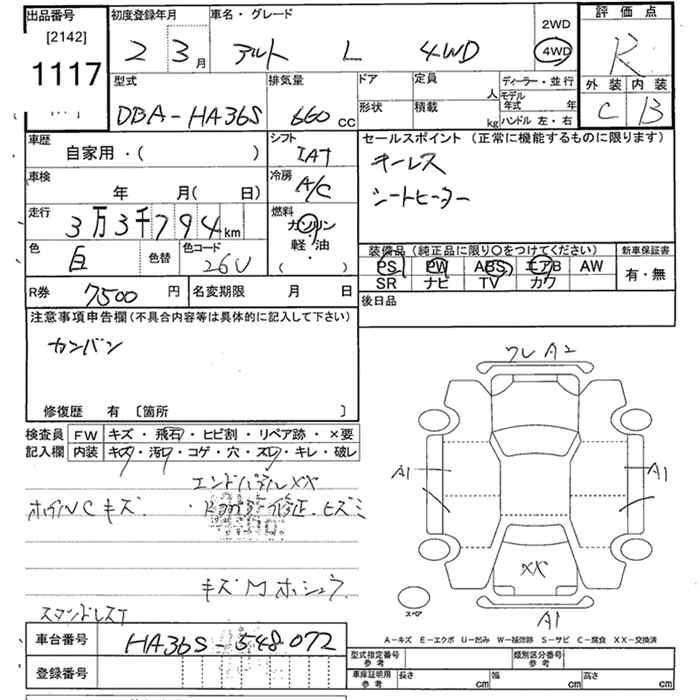 出品番号
[2142]
1117
初度登録年月
2 3 月
車名・グレード
アルト L 4WD
2WD
4WD
評価点
R
外装 内装
C B
型式
DBA-HA36S
排気量
660 cc
ドア
形状
定員
人
積載
kg
ディーラー・並行
モデル
年式 年
ハンドル 左・右
車歴
自家用・( )
シフト
IAT
車検
年 月( 日)
冷房
A/C
走行
3万3千794 km
燃料
ガソリン
軽・油
( ・ )
色
白
色替
色コード
26U
R券
7500 円
名変期限 月 日
セールスポイント(正常に機能するものに限ります)
キーレス
シートヒーター
装備品(純正品に限り○をつけてください)
PS PW ABS エアB AW
SR ナビ TV カワ
新車保証書
有・無
後日品
注意事項申告欄(不具合内容等は具体的に記入して下さい)
カンバン
修復歴 有 〔箇所 〕
検査員
記入欄
FW キズ・飛石・ヒビ割・リペア跡・×要
内装 キズ・汚れ・コゲ・穴・スレ・キレ・破レ
エンドパネルXX
ホイルCキズ
修正 ヒズミ
キズMホシュウ
スタンドレスT
ワレ A2
A1
A1
XX
A1
スペア
A-キズ E-エクボ U-凹み W-補修跡 S-サビ C-腐食 XX-交換済
車台番号
HA36S-548072
登録番号
型式指定番号
参考
類別区分番号
参考
車庫証明用
参考
長さ cm
幅 cm
高さ cm